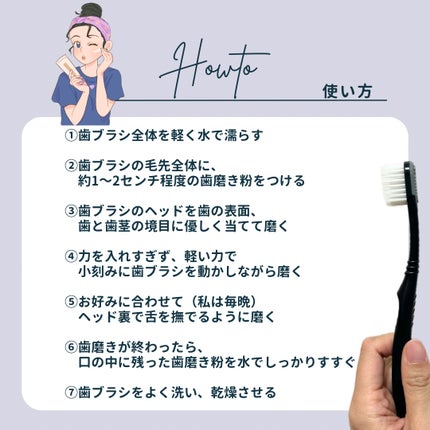 Howto
使い方
①歯ブラシ全体を軽く水で濡らす
②歯ブラシの毛先全体に、
約1〜2センチ程度の歯磨き粉をつける
③歯ブラシのヘッドを歯の表面、
歯と歯茎の境目に優しく当てて磨く
④力を入れすぎず、軽い力で
小刻みに歯ブラシを動かしながら磨く
⑤お好みに合わせて（私は毎晩）
ヘッド裏で舌を撫でるように磨く
⑥歯磨きが終わったら、
口の中に残った歯磨き粉を水でしっかりすすぐ
⑦歯ブラシをよく洗い、乾燥させる